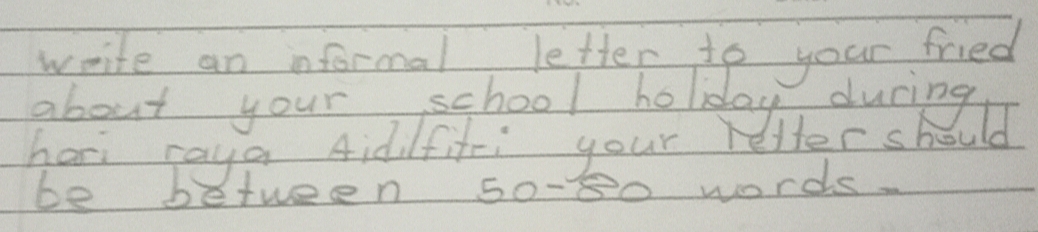 write an nformal letter to your fried
about your school holiday during
hari raya Aidilfitri your letter should
be between 50-80 words.